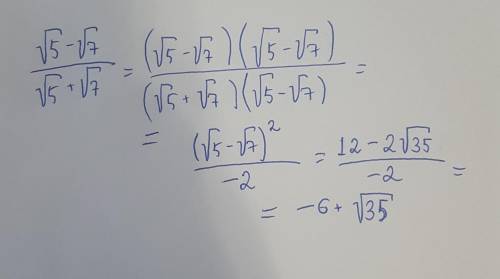 (√5 - √7)/(√5 + √7) = ((√5 - √7)(√5 - √7))/((√5 + √7)(√5 - √7)) =
= (√5 - √7)²/-2 = (12 - 2√35)/-2 =
= -6 + √35